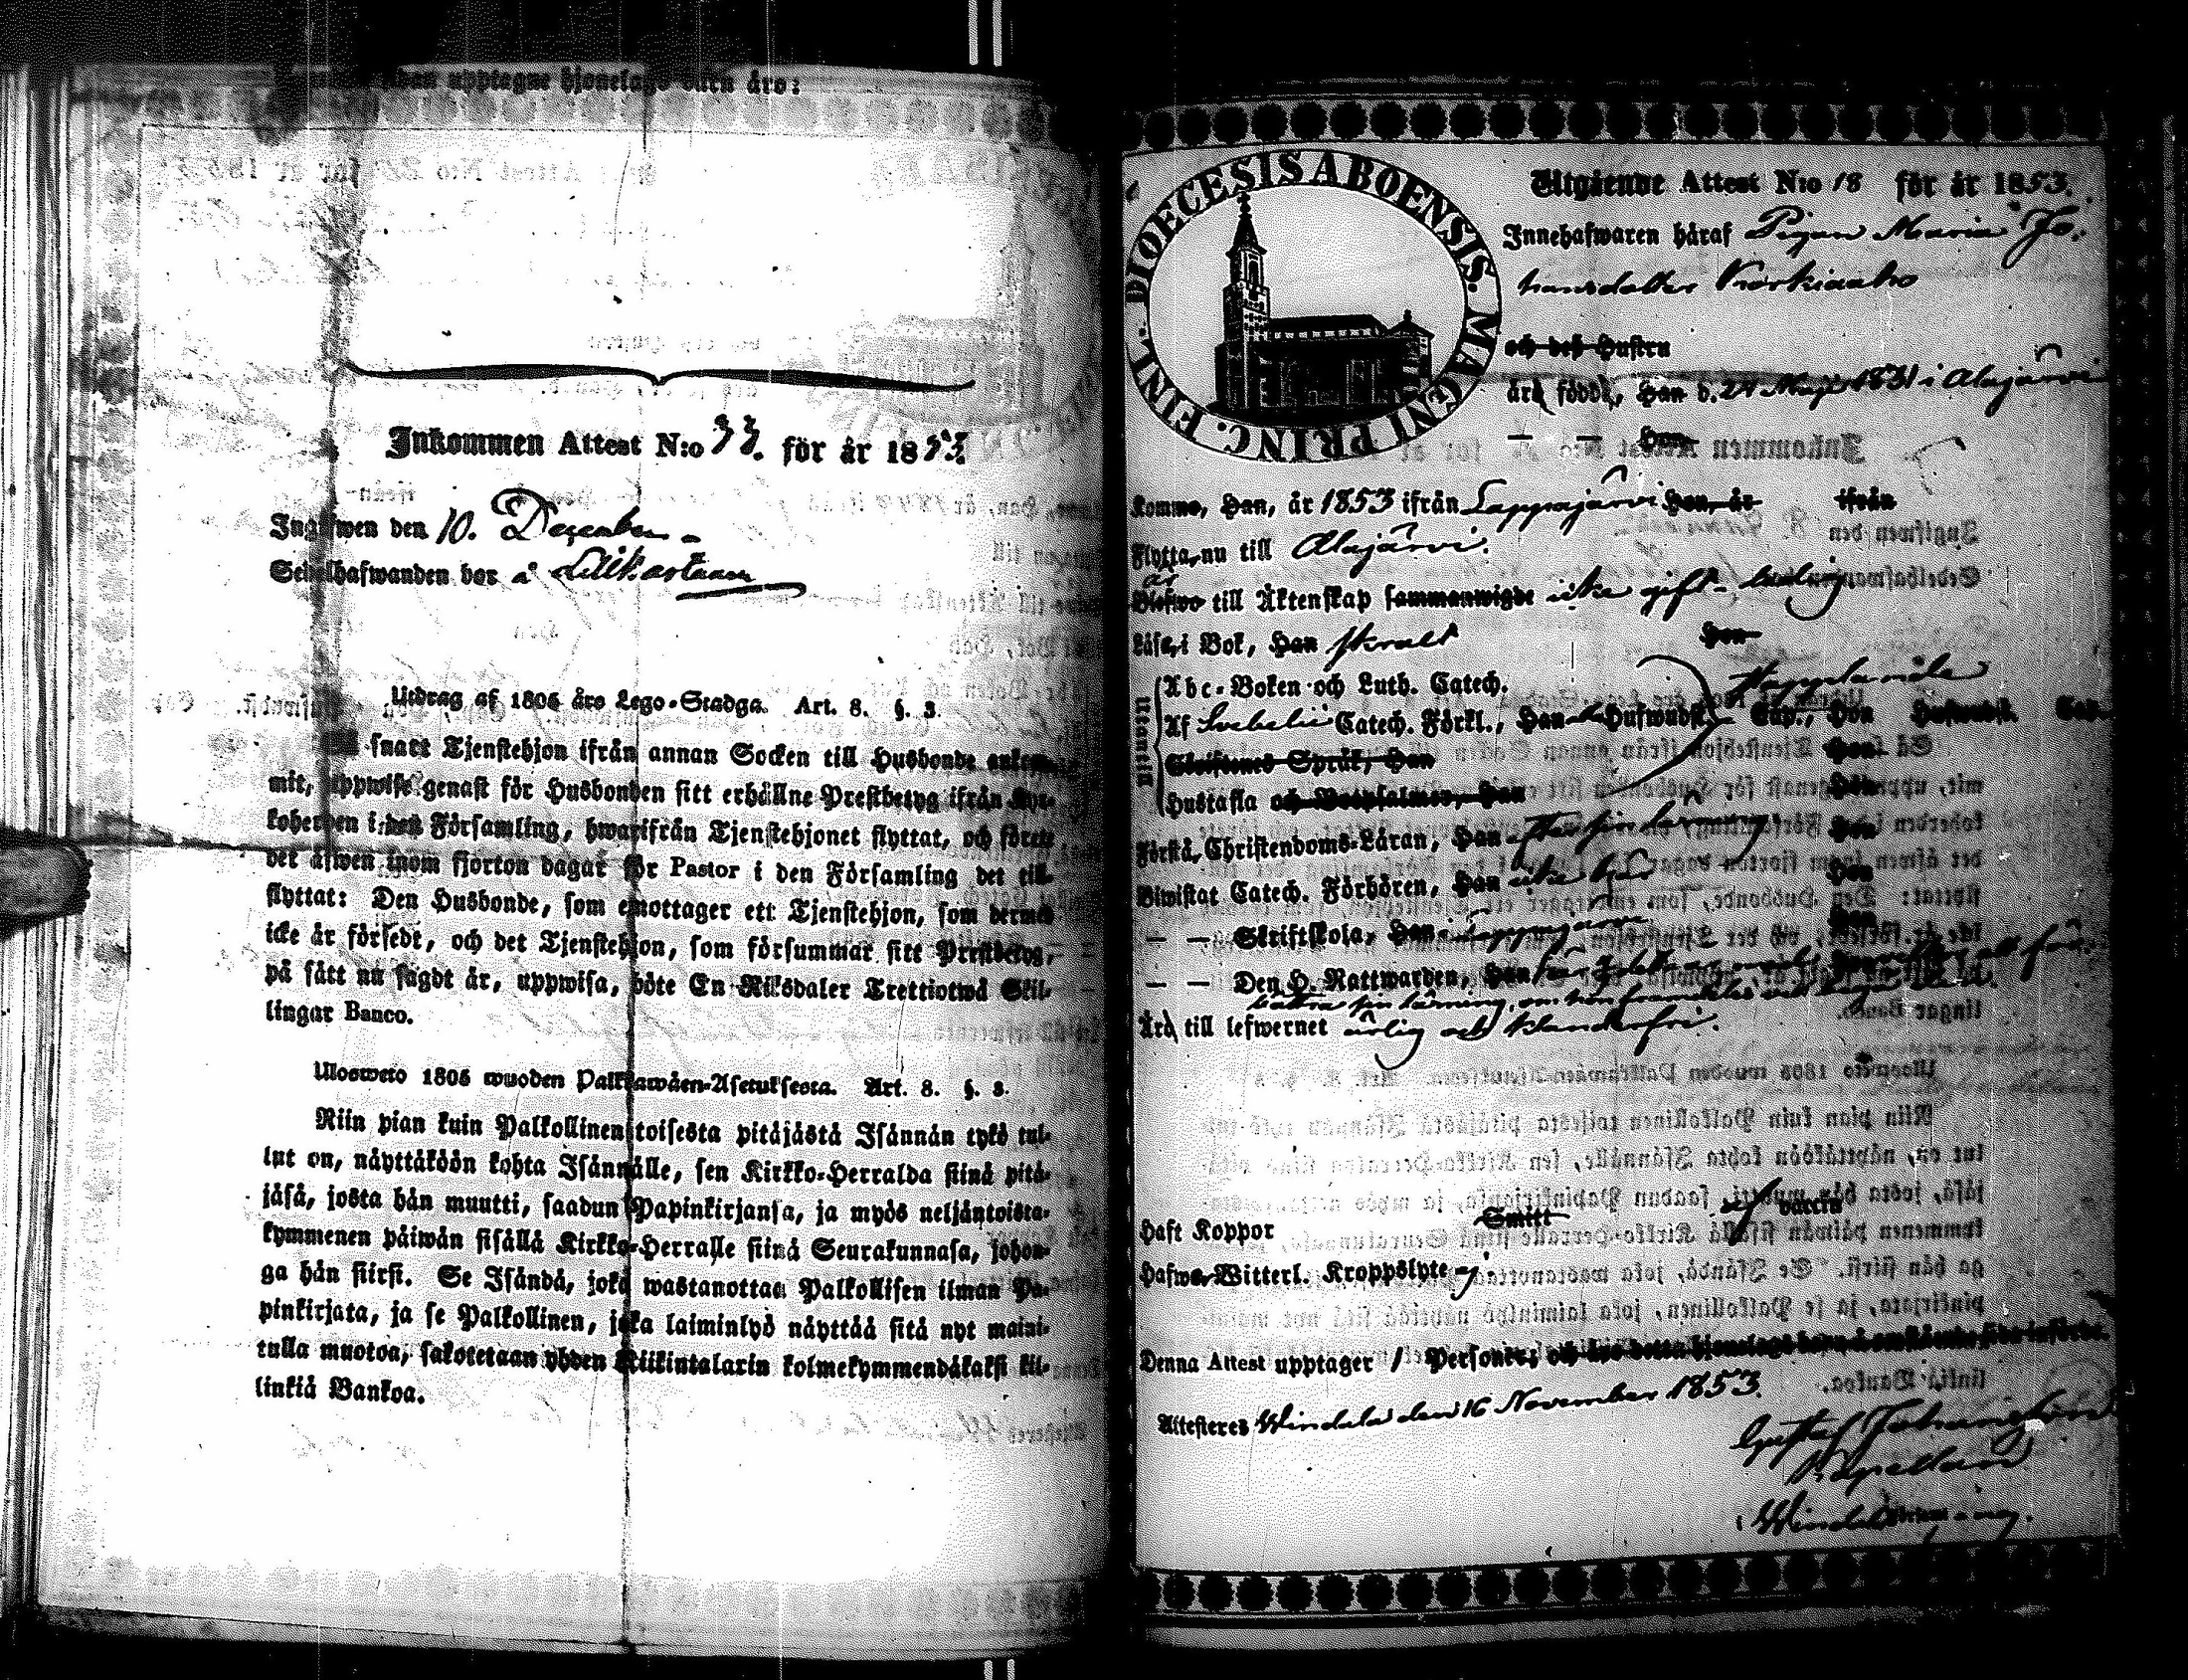 upptagne hjonelags barn äro:
Inkommen Attest N:o 33. för år 1853.
Ingifwen den 10. December
Sedelhafwanden bor å
Utdrag af 1805 års Lego-Stadga. Art. 8. §. 3.
snart Tjenstehjon ifrån annan Socken till Husbonde ankom-
mit, uppwise genast för Husbonden sitt erhållne Prestbetyg ifrån Kyr-
koherden i den Församling, hwarifrån Tjenstehjonet flyttat, och förete
det äfwen inom fjorton dagar för Pastor i den Församling det till-
flyttat: Den Husbonde, som emottager ett Tjenstehjon, som dermed
icke är försedt, och det Tjenstehjon, som försummar sitt Prestbetyg,
på sätt nu sagdt är, uppwisa, böte En Riksdaler Trettiotwå Skil-
lingar Banco.
Ulosweto 1805 wuoden Palkkawäen-Asetuksesta. Art. 8. §. 3.
Niin pian kuin Palkollinen toisesta pitäjästä Isännän tykö tul-
lut on, näyttäköön kohta Isännälle, sen Kirkko-Herralda siinä pitä-
jäsä, josta hän muutti, saadun Papinkirjansa, ja myös neljäntoista-
kymmenen päiwän sisällä Kirkko-Herralle siinä Seurakunnasa, johon-
ga hän siirsi. Se Isändä, joka wastanottaa Palkollisen ilman Pa-
pinkirjata, ja se Palkollinen, joka laiminlyö näyttää sitä nyt maini-
tulla muotoa, sakotetaan yhden Riikintalarin kolmekymmendäkaksi kil-
linkiä Bankoa.
DIOECESIS ABOENSIS. MAGNI PRINC. FINL.
Utgående Attest N:o 18 för år 1853.
Innehafwaren häraf Pigan Maria Jo-
hansdotter Korkiaaho
och deß Hustru
äro födde, Han d. 24 Maji 1831 i Alajärvi
— — Hon
Komne, Han, år 1853 ifrån Lappajärvi Hon, år ifrån
Flytta nu till Alajärvi.
är
Blefwo till Äktenskap sammanwigde icke gift - ledig
Läse i Bok, Han swalt Hon
Utantill
Abc-Boken och Luth. Catech.
Af Svebelii Catech. Förkl., Han Hufwudst. Cap., Hon Hufwudst. Cap.
Skriftenes Språk, Han Hon
Hustafla och Botpsalmer, Han Hon
Förstå Christendoms-Läran, Han efter sin lärning. Hon
Biwistat Catech. Förhören, Han icke här Hon
— — Skriftskola, Han Lappajärvi Hon
— — Den H. Nattwarden, Han
Äro till lefwernet ärlig och klanderfri.
Haft Koppor Smitt
Hafwa Witterl. Kroppslyte ej
Denna Attest upptager 1 Personer;
Attesteres Windala den 16 November 1853.
Gustaf Johansson
Kapellan
Windala